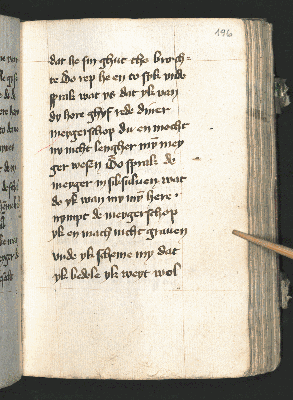 196
dat he sin ghut tho broch=
te Do rep he en to syk vnde
sprak wat ys dat yk van
dy hore ghyf rede diner
meygerschop du en mocht
ny nicht lengher my mey
ger wesen Do sprak de
meyger in sik suluen wat
do yk wan my myn here
nympt de meygerschop
yk en mach nicht grauen
vnde yk scheme my dat
yk bedele yk weyt wol